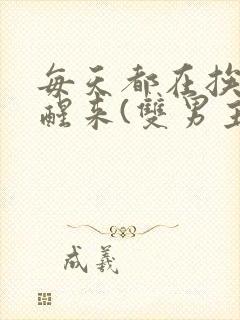 每天都在挨
醒来(雙男主
成義